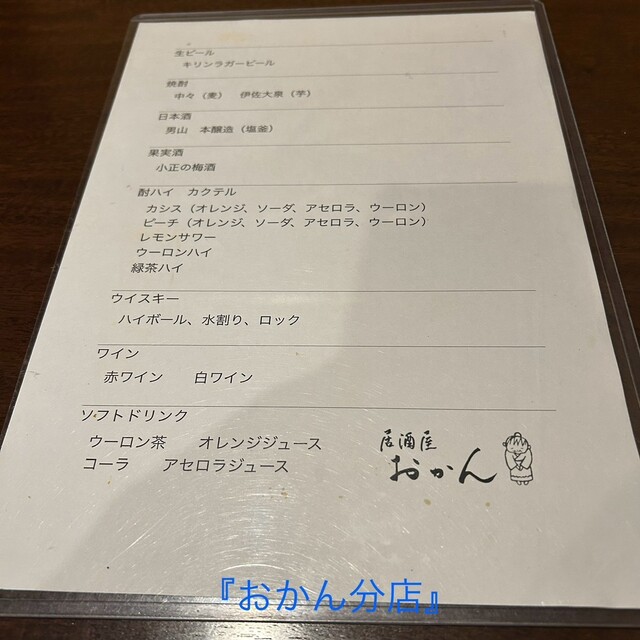 生ビール
キリンラガービール
焼酎
中々（麦）　伊佐大泉（芋）
日本酒
男山　本醸造（塩釜）
果実酒
小正の梅酒
酎ハイ　カクテル
カシス（オレンジ、ソーダ、アセロラ、ウーロン）
ピーチ（オレンジ、ソーダ、アセロラ、ウーロン）
レモンサワー
ウーロンハイ
緑茶ハイ
ウイスキー
ハイボール、水割り、ロック
ワイン
赤ワイン　　白ワイン
ソフトドリンク
ウーロン茶　　オレンジジュース
コーラ　　アセロラジュース
居酒屋
おかん
『おかん分店』